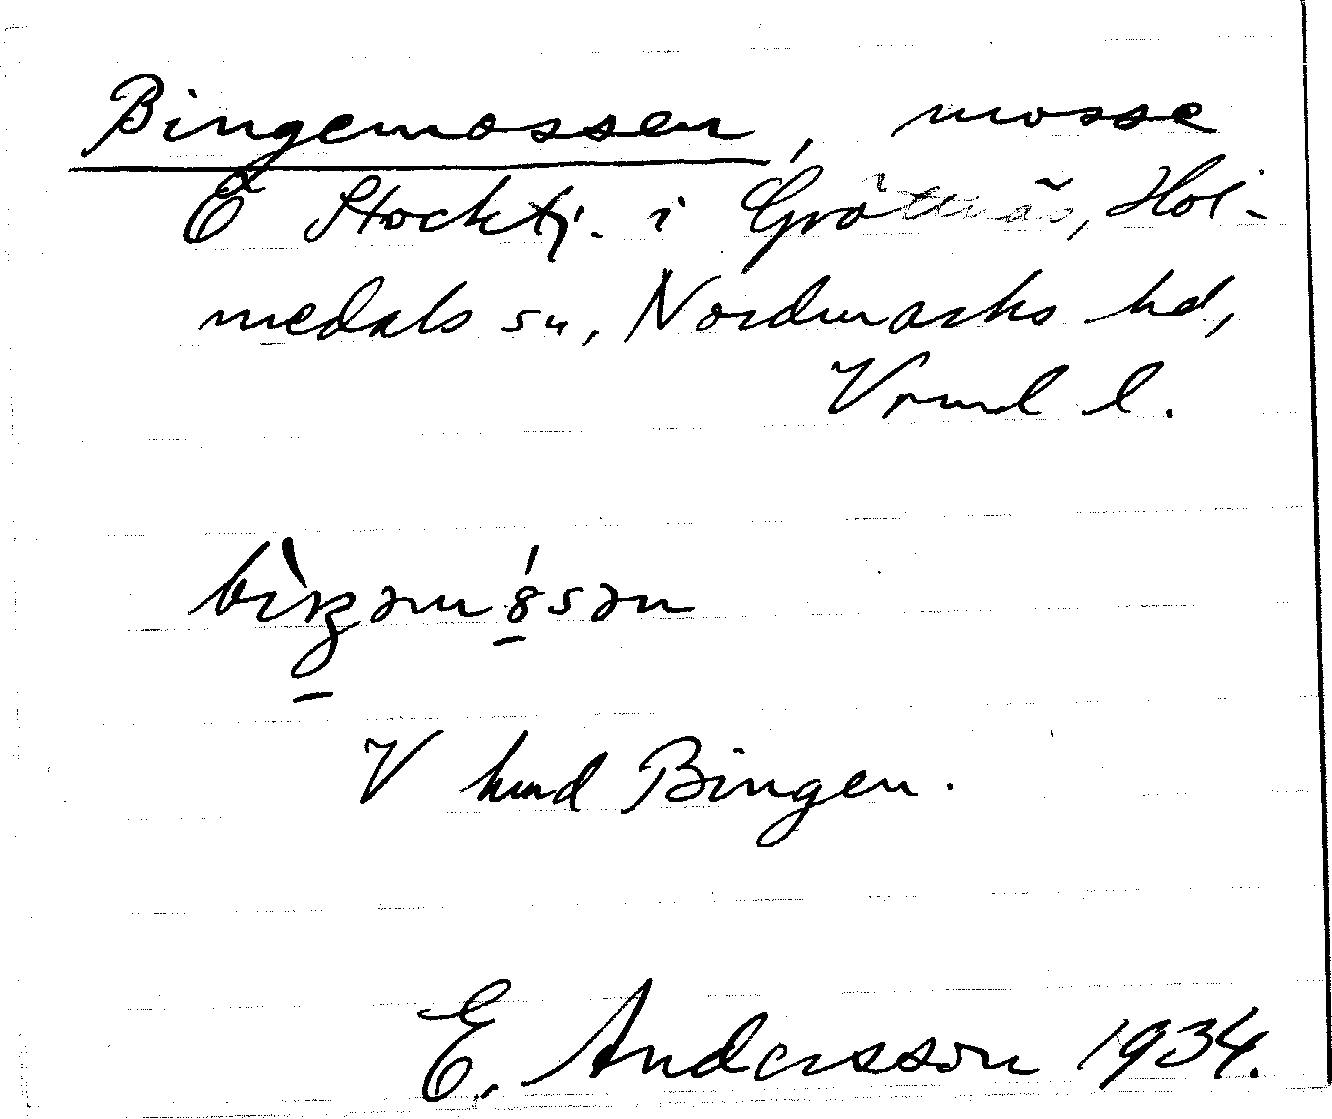 Bingemossen, mosse
Ö Stocktj. i Grötnäs, Hol-
medals sn, Nordmarks hd,
Vrml l.
bìŋəmósən
V hmd Bingen.
E. Andersson 1934.